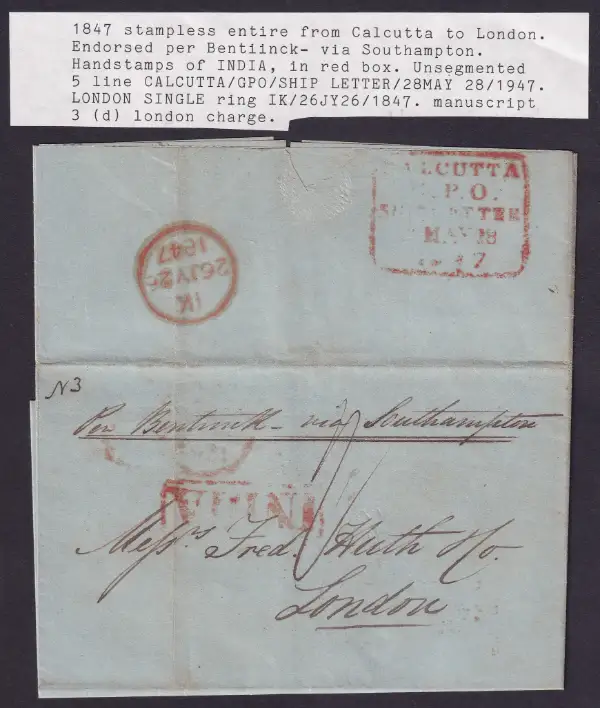 1847 stampless entire from Calcutta to London.
Endorsed per Bentiinck- via Southampton.
Handstamps of INDIA, in red box. Unsegmented
5 line CALCUTTA/GPO/SHIP LETTER/28MAY 28/1947.
LONDON SINGLE ring IK/26JY26/1847. manuscript
3 (d) london charge.
CALCUTTA
P.O.
SHIP LETTER
MAY 18
7
IK
26JY26
1847
N3
Per Bentinck - via Southampton
INDIA
Messrs Fred. Huth & Co.
London